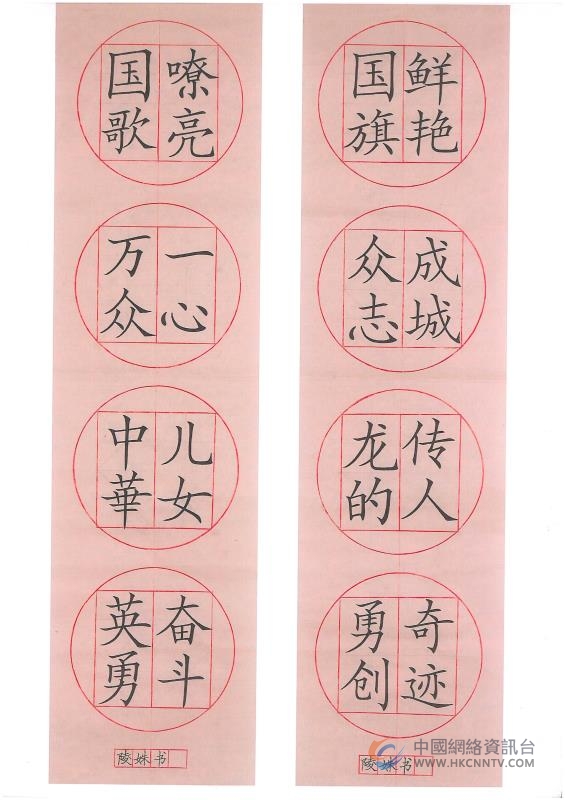 国歌嘹亮
万众一心
中華儿女
英勇奋斗
陵姝书
国旗鲜艳
众志成城
龙的传人
勇创奇迹
陵姝书
中國網絡資訊台
WWW.HKCNNTV.COM